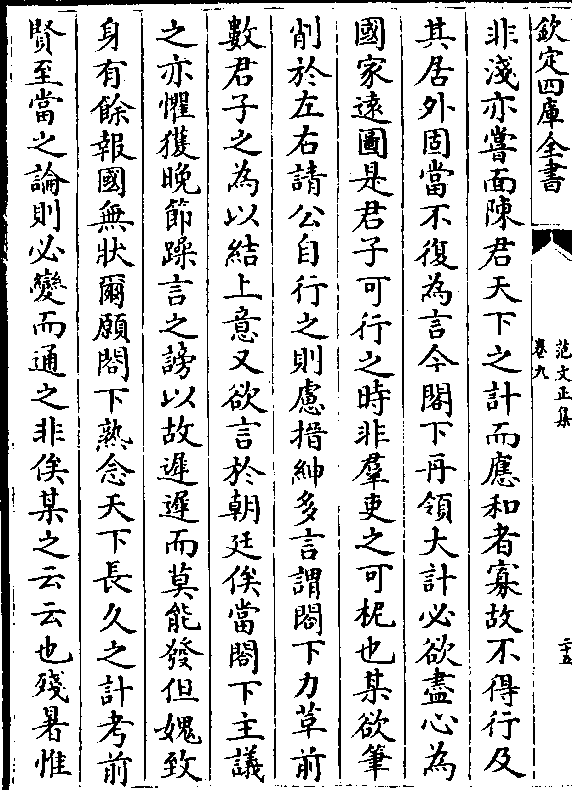 欽定四庫全書
范文正集
卷九
二十五
非淺亦嘗面陳君天下之計而應和者寡故不得行及
其居外固當不復為言今閣下再領大計必欲盡心為
國家遠圖是君子可行之時非羣吏之可柅也某欲筆
削於左右請公自行之則慮搢紳多言謂閣下力草前
數君子之為以結上意又欲言於朝廷俟當閣下主議
之亦懼獲晚節躁言之謗以故遲遲而莫能發但媿致
身有餘報國無狀爾願閣下熟念天下長久之計考前
賢至當之論則必變而通之非俟某之云云也殘暑惟